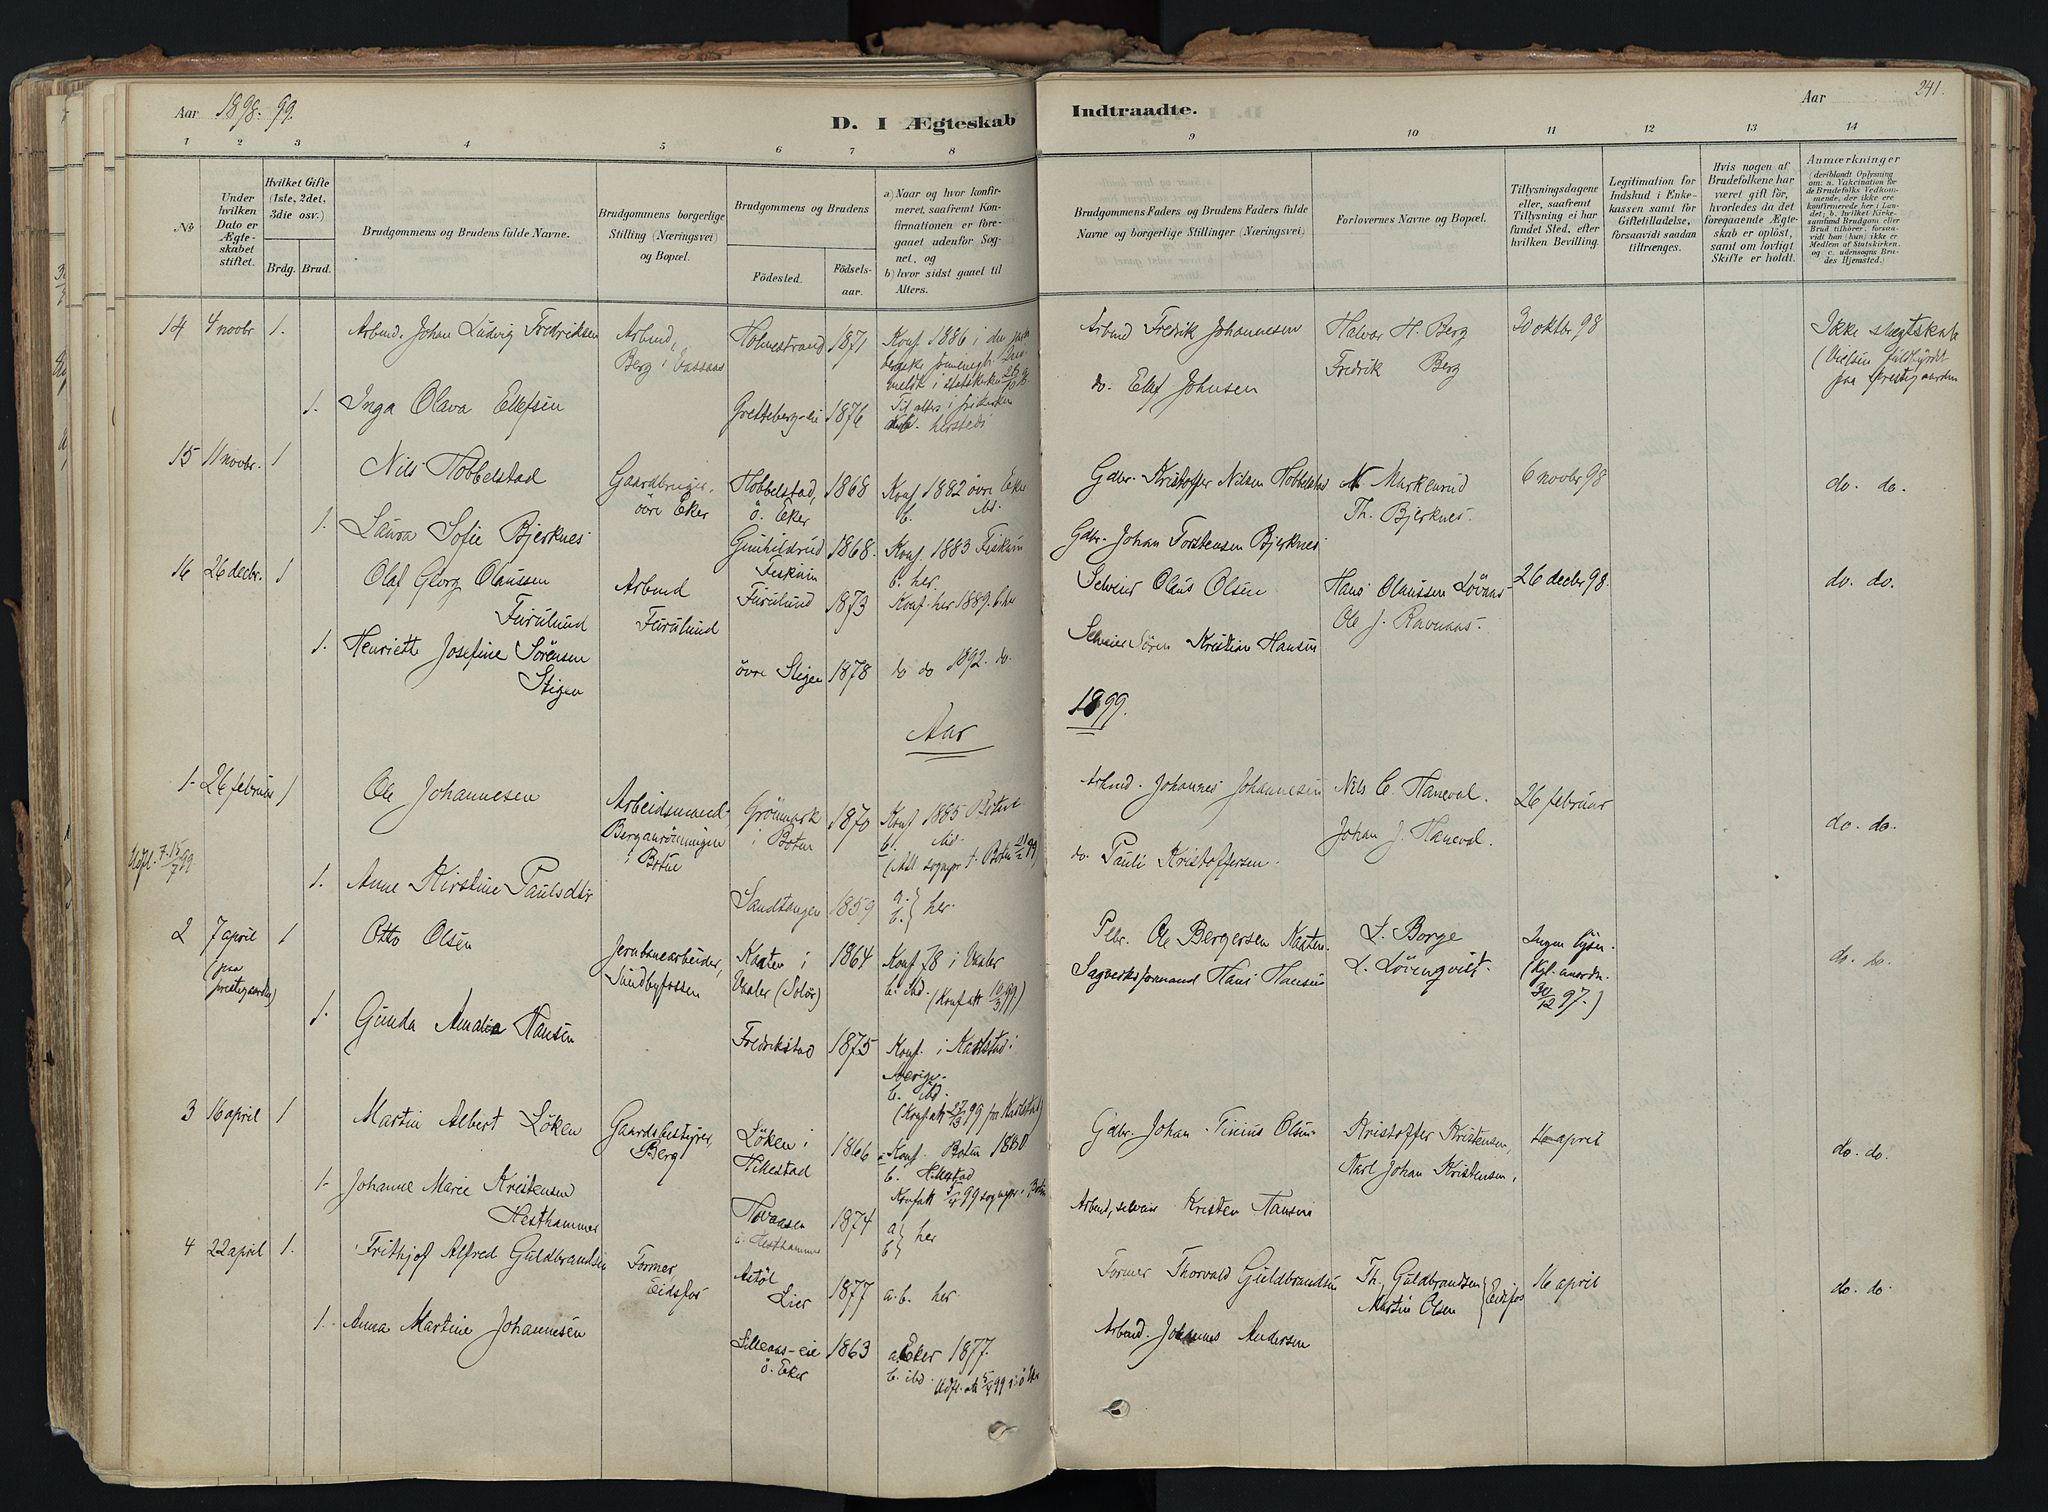 Aar 1898-99.
D. I Ægteskab Indtraadte.
Aar
241.
1 2 3 4 5 6 7 8 9 10 11 12 13 14
No
Under hvilken Dato er Ægteskabet stiftet.
Hvilket Gifte (1ste, 2det, 3die osv.)
Brdg. Brud.
Brudgommens og Brudens fulde Navne.
Brudgommens borgerlige Stilling (Næringsvei) og Bopæl.
Brudgommens og Brudens
Födested. Födselsaar.
a) Naar og hvor konfirmeret, saafremt Konfirmationen er foregaaet udenfor Sognet, og
b) hvor sidst gaaet til Alters.
Brudgommens Faders og Brudens Faders fulde Navne og borgerlige Stillinger (Næringsvei)
Forlovernes Navne og Bopæl.
Tillysningsdagene eller, saafremt Tillysning ei har fundet Sted, efter hvilken Bevilling.
Legitimation for Indskud i Enkekassen samt for Giftetilladelse, forsaavidt saadan tiltrænges.
Hvis nogen af Brudefolkene har været gift för, hvorledes da det foregaaende Ægteskab er oplöst, samt om lovligt Skifte er holdt.
Anmærkninger (deriblandt Oplysning om: a. Vakcination for de Brudefolks Vedkommende, der ikke ere konfirmerede her i Landet; b. hvilket Kirkesamfund Brudgom eller Brud tilhörer, forsaavidt han (hun) ikke er Medlem af Statskirken, og c. udensogns Brudes Hjemsted.)
14 4 novbr 1. Arbmd. Johan Ludvig Fredriksen Arbmd, Berg i Vassaas Holmestrand 1871 Konf 1886 i den
Arbmd Fredrik Johannesen Halvor H. Berg 30 oktbr 98 Ikke slægtskab
Fredrik Berg
paa prestegaarden
1. Inga Olava Ellefsen Grettebergeie 1876 Til alters i frikirken
do. Elef Johnsen
15 11 novbr. 1 Nils Hobbelstad Gaardbruger, övre Eker Hobbelstad, ö. Eker 1868 Konf 1882 övre Eker
b. ibd.
Gdbr. Kristoffer Nilsen Hobbelstad N Markerud 6 novbr 98 do. do.
Th. Bjerknes.
1. Laura Sofie Bjerknes Gunhildrud Fiskum 1868. Konf. 1883 Fiskum
b. her.
Gdbr. Johan Torstensen Bjerknes
16 26 decbr. 1 Olaf Georg Olaussen Furulund Arbmd Furulund Furulund 1873 Konf. her 1889. b. her
Selveier Olaus Olsen Hans Olaussen Lövaas 26 decbr 98. do. do.
Ole J. Ravnaas.
1. Henriette Josefine Sörensen Stigen övre Stigen 1878 do do 1892. do.
Selveier Sören Kristian Hansen
Aar 1899.
1. 26 februar 1 Ole Johannesen Arbeidsmand, Berganrönningen i Botne Grönmark i Botne 1870 Konf 1885 Botne
b. ibd.
(Att. sognepr. t. Botne 21/2 99)
Arbmd. Johannes Johannesen Nils C. Haneval. 26 februar do. do.
Johan J. Haneval.
Udfl. 7. 15/7 99
1. Anne Kirstine Paulsdtr Sandtangen 1859 a. b. } her.
do. Pauli Kristoffersen.
2 7 april (paa prestegaarden) 1 Otto Olsen Jernbanearbeider, Sundbyfossen Kaaten i Vaaler (Solör) 1864 Konf 78 i Vaaler
b. ibd. (Konfatt 10/3 99)
Pbr. Ole Bergersen Kaaten. L. Borge Ingen lysn. (Kgl. anordn. 30/12 97.) do. do.
L. Lövenqvist.
1. Gunda Amalia Hansen Fredrikstad 1875 Konf. i Karlstad i Sverige.
b. ibd.
(Konfatt 27/3 99 fra Karlstad)
Sagverksformand Hans Hansen
3 16 april 1 Martin Albert Löken Gaardsbestyrer, Berg Löken i Hillestad 1866 Konf. Botne 1880
b. Hillestad
Konfatt 5/4 99 sognepr. i Botne
Gdbr. Johan Tinius Olsen Kristoffer Kristensen, 16 april do. do.
Karl Johan Kristensen.
1. Johanne Marie Kristensen Hesthammer Hovaasen u. Hesthammer 1874 a b } her
Arbmd, selveier Kristen Hansen
4 22 april 1. Frithjof Alfred Guldbrandsen Former, Eidsfos Astöl Lier 1877 a. b. her.
Former Thorvald Guldbrandsen Th. Guldbrandsen } Eidsfos 16 april do. do.
Martin Olsen
1. Anna Martine Johannesen Lilleaas-eie ö. Eker 1863 a. Eker 1877.
b. ibd. Udfl. att 5/4 99
Arbmd. Johannes Andersen